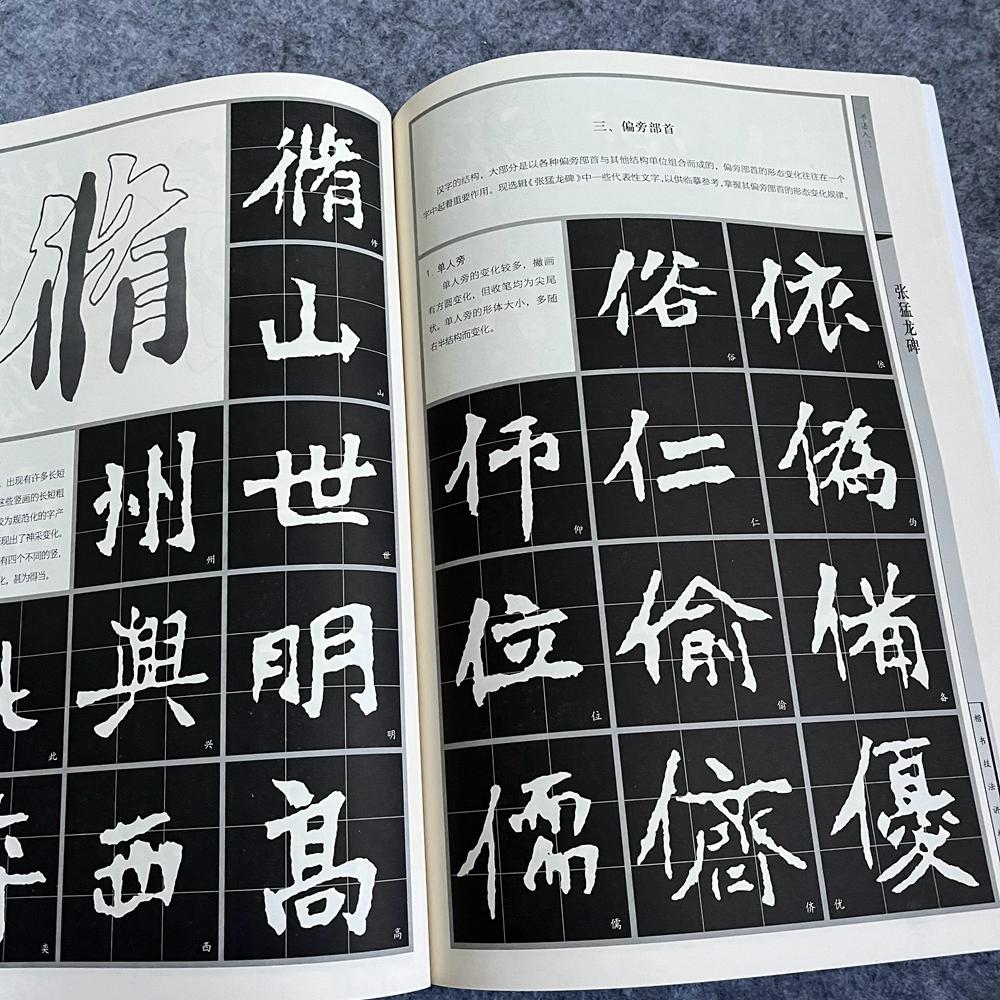 脩
脩
修
山
山
出现有许多长短
这些竖画的长短粗
较为规范化的字产
现出了神采变化。
有四个不同的竖,
化,甚为得当。
州
州
世
世
此
興
兴
明
明
西
西
高
高
三、偏旁部首
汉字的结构,大部分是以各种偏旁部首与其他结构单位组合而成的,偏旁部首的形态变化往往在一个
字中起着重要作用。现选辑《张猛龙碑》中一些代表性文字,以供临摹参考,掌握其偏旁部首的形态变化规律。
1. 单人旁
单人旁的变化较多,撇画
有方圆变化,但收笔均为尖尾
状。单人旁的形体大小,多随
右半结构而变化。
俗
俗
依
依
仰
仰
仁
仁
偽
伪
位
位
偷
偷
備
备
儒
儒
儕
侪
優
优
书法入门
张猛龙碑
楷书技法讲